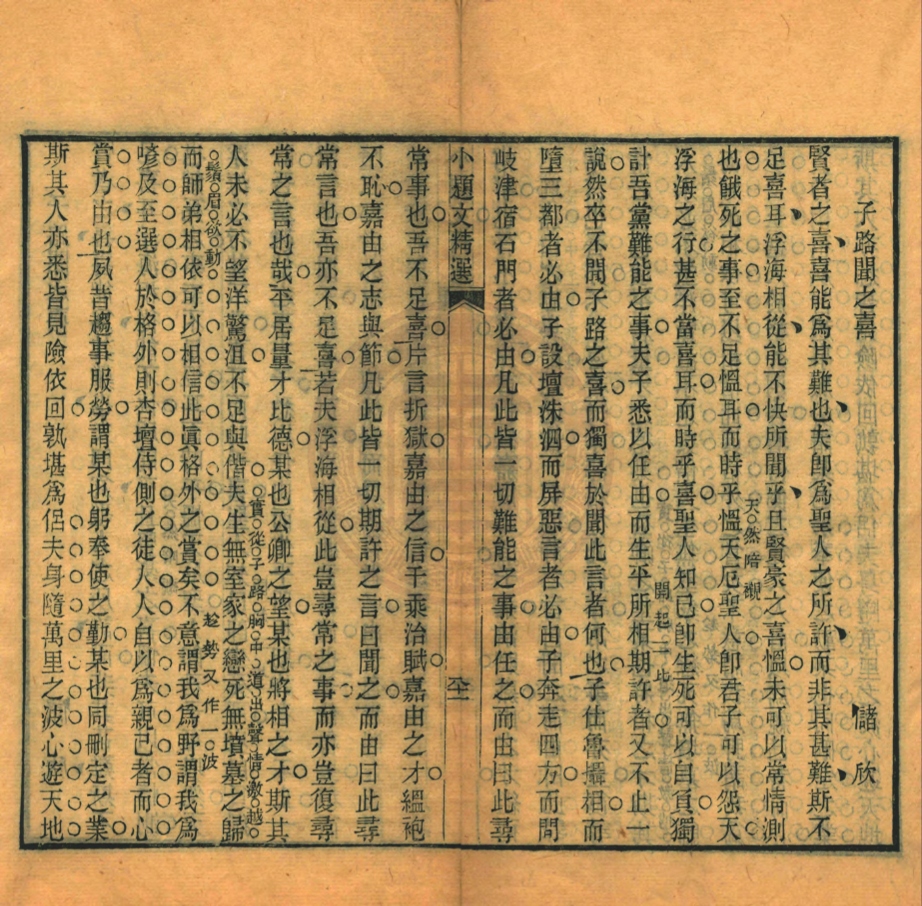 子路聞之喜　儲欣
賢者之喜喜能爲其難也夫卽爲聖人之所許而非其甚難斯不
足喜耳浮海相從能不快所聞乎且賢豪之喜慍未可以常情測
也餓死之事至不足慍耳而時乎慍天厄聖人卽君子可以怨天
天然暗襯
浮海之行甚不當喜耳而時乎喜聖人知已卽生死可以自負獨
開起二比
計吾黨難能之事夫子悉以任由而生平所相期許者又不止一
說然卒不聞子路之喜而獨喜於聞此言者何也子仕魯攝相而
墮三都者必由子設壇洙泗而屏惡言者必由子奔走四方而問
岐津宿石門者必由凡此皆一切難能之事由任之而由曰此尋
小題文精選
常事也吾不足喜片言折獄嘉由之信千乘治賦嘉由之才縕袍
不恥嘉由之志與節凡此皆一切期許之言曰聞之而由曰此尋
常言也吾亦不足喜若夫浮海相從此豈尋常之事而亦豈復尋
常之言也哉平居量才比德某也公卿之望某也將相之才斯其
實從子路胸中道出聲情激越
人未必不望洋驚沮不足與偕夫生無室家之戀死無墳墓之歸
鬚眉欲動
趁勢又作一波
而師弟相依可以相信此眞格外之賞矣不意謂我爲野謂我爲
喭及至選人於格外則杏壇侍側之徒人人自以爲親己者而心
賞乃由也夙昔趨事服勞謂某也躬奉使之勤某也同刪定之業
斯其人亦悉皆見險依回孰堪爲侶夫身隨萬里之波心遊天地